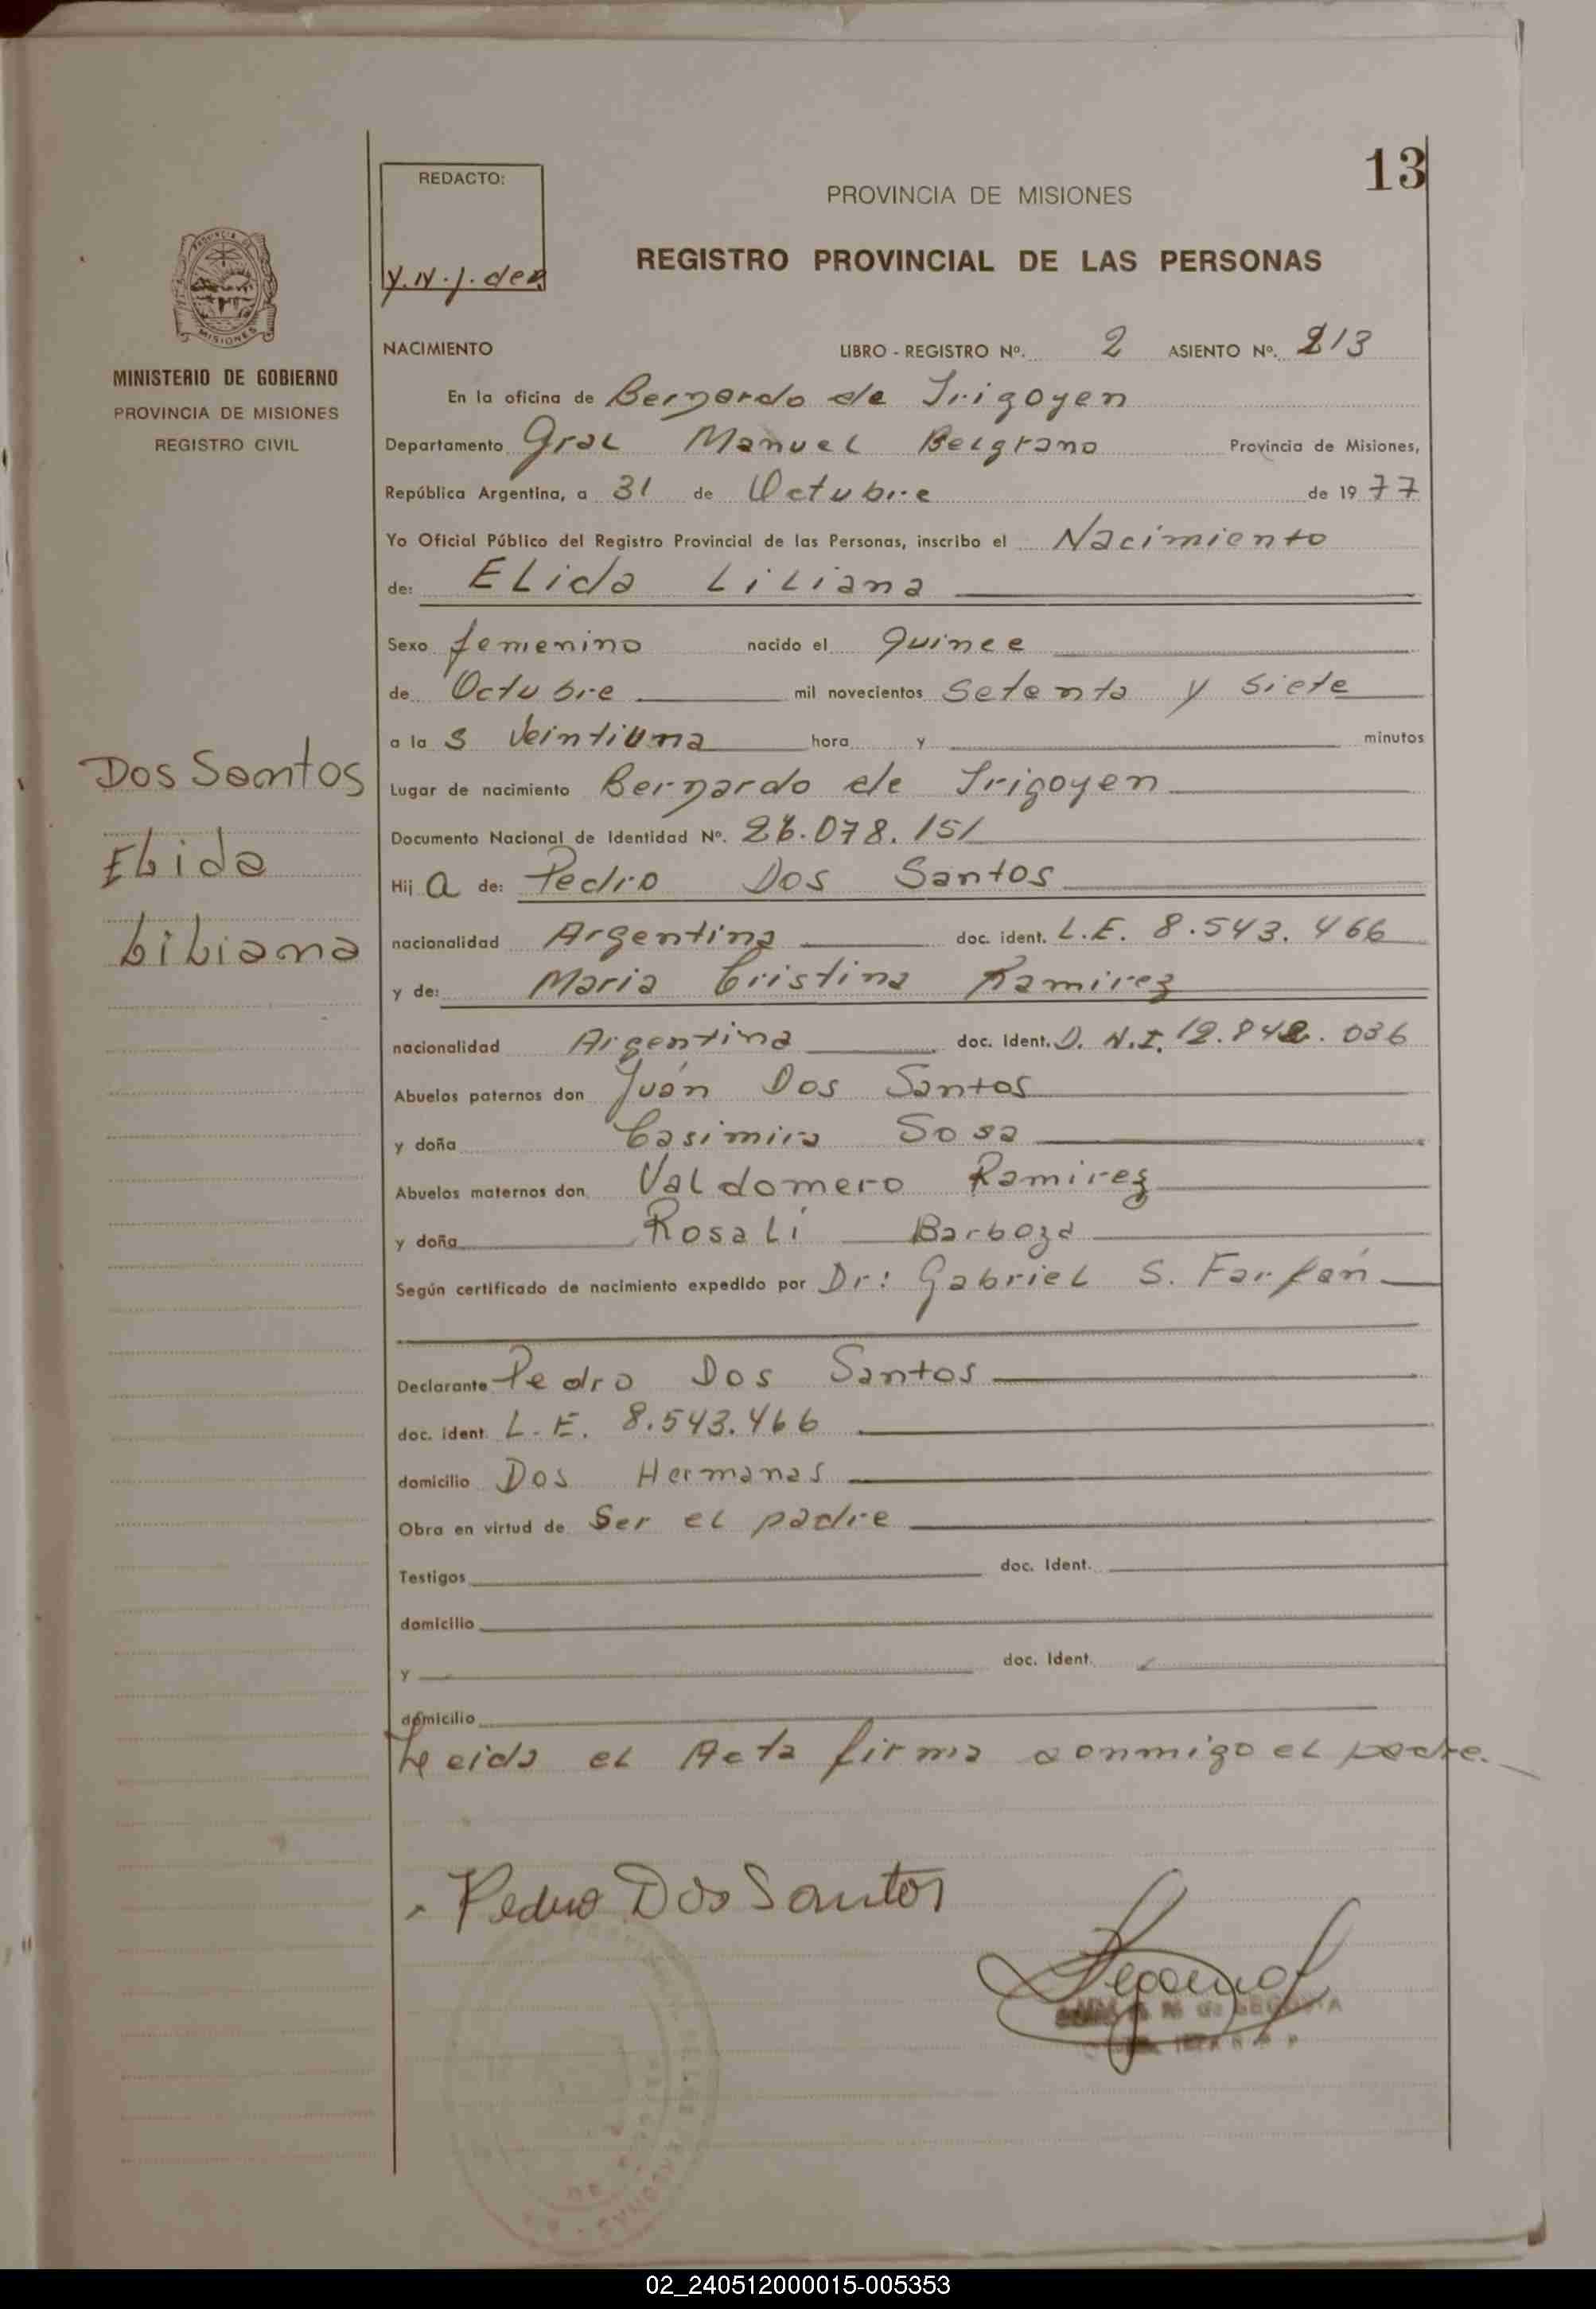 13
REDACTO:
PROVINCIA DE MISIONES
REGISTRO PROVINCIAL DE LAS PERSONAS
MINISTERIO DE GOBIERNO
PROVINCIA DE MISIONES
REGISTRO CIVIL
Dos Santos
Elida
Liliana
NACIMIENTO LIBRO - REGISTRO Nº. 2 ASIENTO Nº. 213
En la oficina de Bernardo de Irigoyen
Departamento Gral Manuel Belgrano Provincia de Misiones,
República Argentina, a 31 de Octubre de 1977
Yo Oficial Público del Registro Provincial de las Personas, inscribo el Nacimiento
de: Elida Liliana
Sexo femenino nacido el Quince
de Octubre mil novecientos Setenta y Siete
a la s Veintiuna hora y minutos
Lugar de nacimiento Bernardo de Irigoyen
Documento Nacional de Identidad Nº. 26.078.151
Hij a de: Pedro Dos Santos
nacionalidad Argentina doc. ident. L.E. 8.543.466
y de: Maria Cristina Ramirez
nacionalidad Argentina doc. Ident. D.N.I. 12.842.036
Abuelos paternos don Juán Dos Santos
y doña Casimira Sosa
Abuelos maternos don Valdomero Ramirez
y doña Rosalí Barboza
Según certificado de nacimiento expedido por Dr: Gabriel S. Farfán
Declarante Pedro Dos Santos
doc. ident. L.E. 8.543.466
domicilio Dos Hermanas
Obra en virtud de Ser el padre
Testigos doc. Ident.
domicilio
y doc. Ident.
domicilio
Leida el Acta firma conmigo el padre.
Pedro Dos Santos
02_240512000015-005353